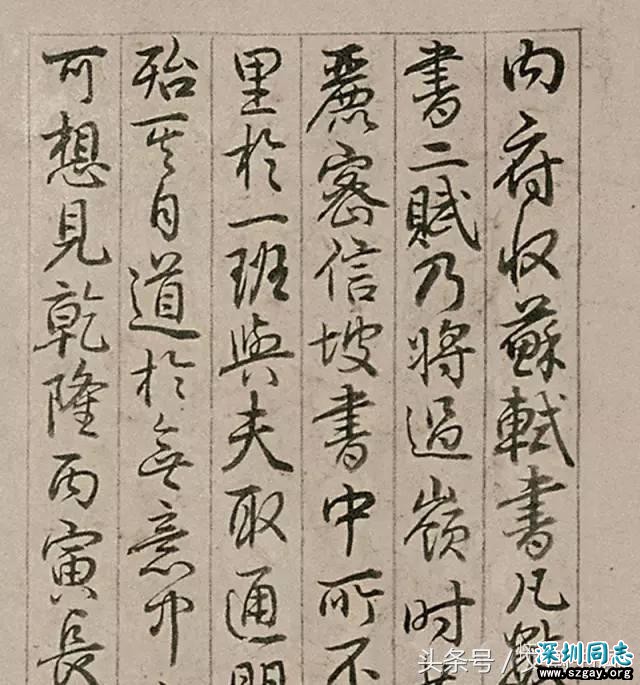 内府收蘇軾書凡數
書二賦乃將過嶺時
麗密信坡書中所不
里於一班與夫取通
殆其自道於無意中
可想見乾隆丙寅長
头条号/
深圳同志
www.szgay.org